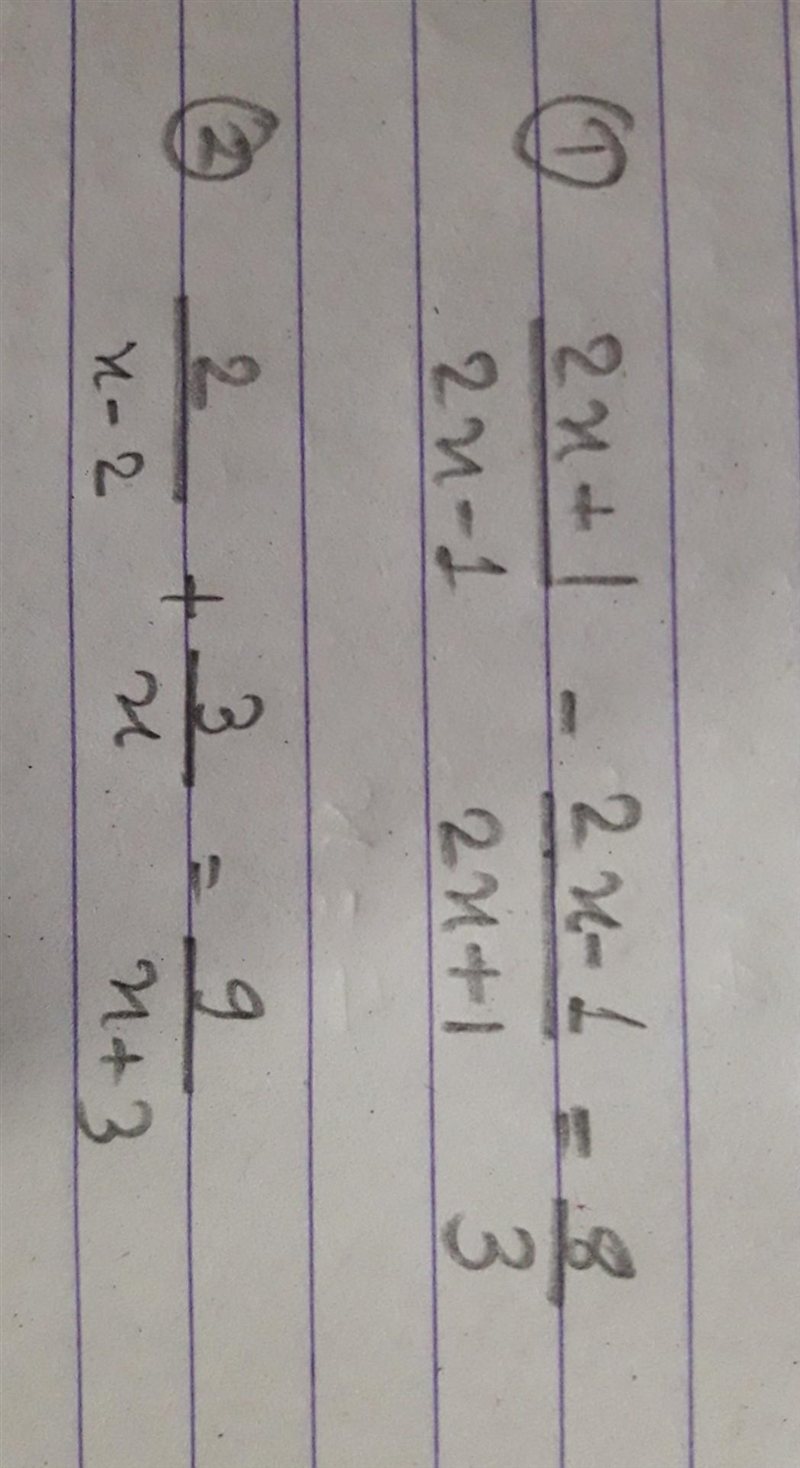 ① (2x+1)/(2x-1) - (2x-1)/(2x+1) = 8/3
② 2/(x-2) + 3/x = 9/(x+3)